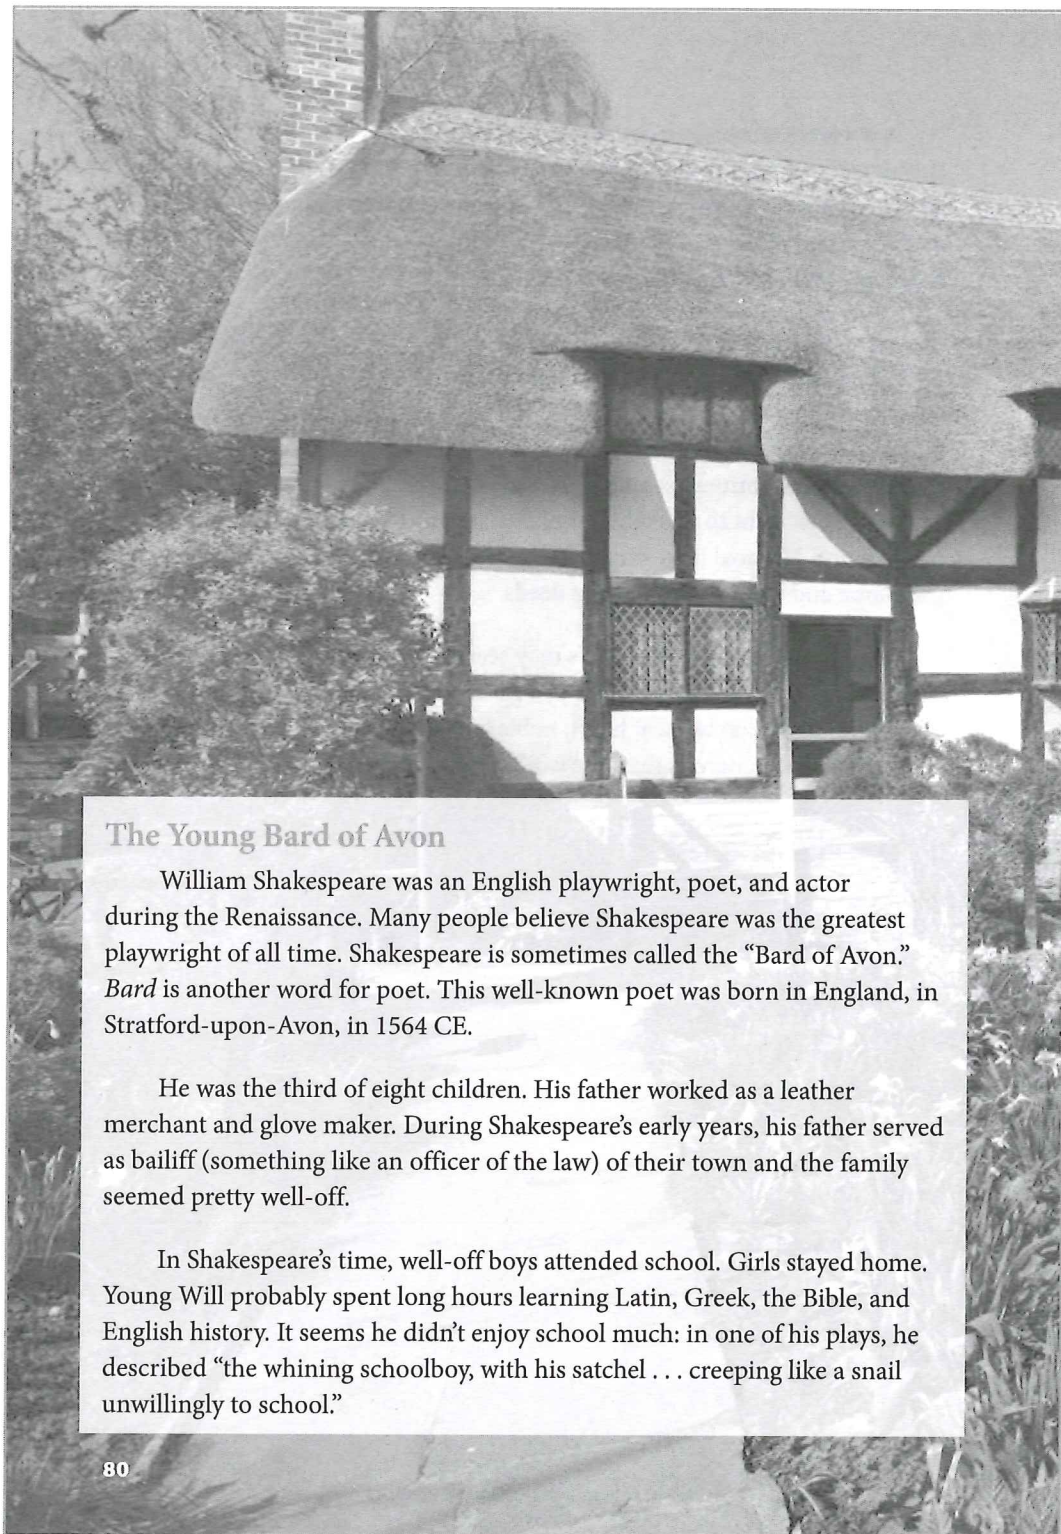 The Young Bard of Avon
William Shakespeare was an English playwright, poet, and actor
during the Renaissance. Many people believe Shakespeare was the greatest
playwright of all time. Shakespeare is sometimes called the “Bard of Avon.”
Bard is another word for poet. This well-known poet was born in England, in
Stratford-upon-Avon, in 1564 CE.
He was the third of eight children. His father worked as a leather
merchant and glove maker. During Shakespeare’s early years, his father served
as bailiff (something like an officer of the law) of their town and the family
seemed pretty well-off.
In Shakespeare’s time, well-off boys attended school. Girls stayed home.
Young Will probably spent long hours learning Latin, Greek, the Bible, and
English history. It seems he didn’t enjoy school much: in one of his plays, he
described “the whining schoolboy, with his satchel . . . creeping like a snail
unwillingly to school.”
80